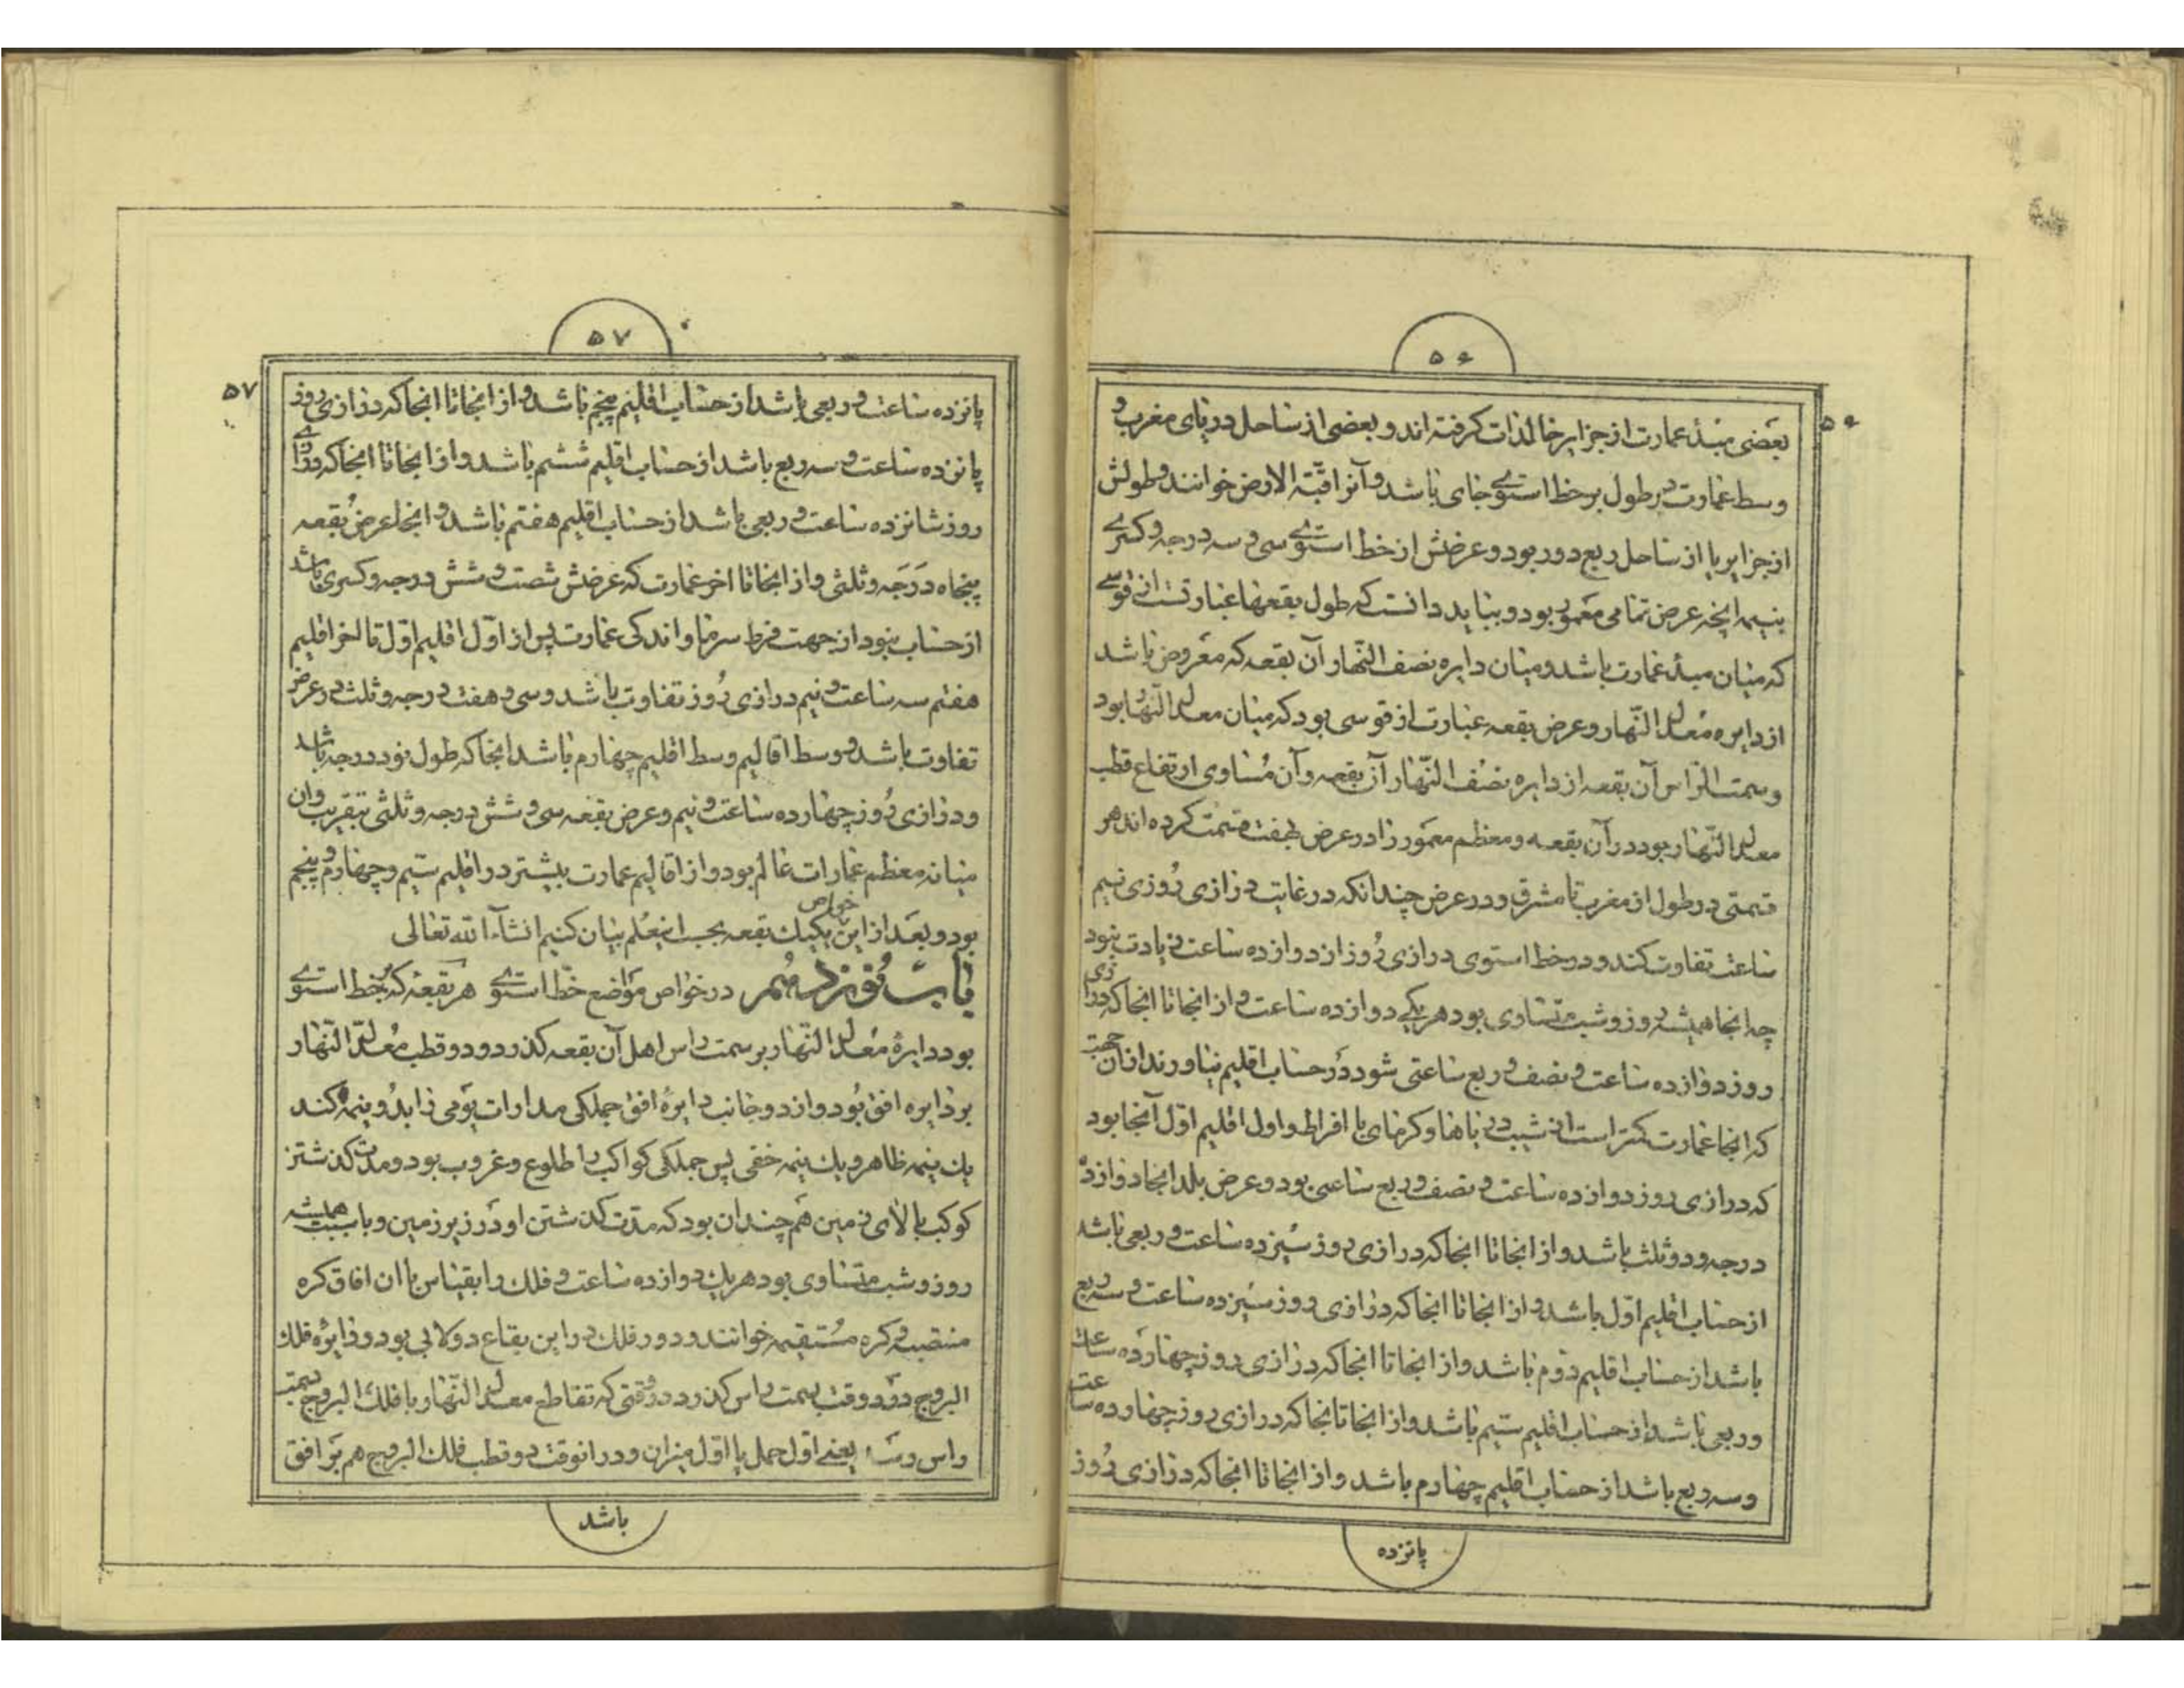 ۵۶
۵۶
بعضی مبدء عمارت از جزایر خالدات گرفته اند و بعضی از ساحل دریای مغرب و
وسط عمارت در طول بر خط استوی جای باشد و آنرا قبّة الارض خوانند و طولش
از جزایر یا از ساحل ربع دور بود و عرضش از خط استوی سی و سه درجه و کسری
بنیمه انچه عرض تمامی معمور بود و بباید دانست که طول بقعها عبارتست از قوسی
که میان مبدء عمارت باشد و میان دایره نصف النّهار آن بقعه که مفروض باشد
از دایره معدل النّهار و عرض بقعه عبارت از قوسی بود که میان معدل النّهار بود
و سمت الرّاس آن بقعه از دایره نصف النّهار آن بقعه و آن مساوی ارتفاع قطب
معدل النّهار بود در آن بقعه و معظم معمور را در عرض بهفت قسمت کرده اند هر
قسمتی در طول از مغرب تا مشرق و در عرض چندانکه در غایت درازی روزی نیم
ساعت تفاوت کند و در خط استوی درازی روز از دوازده ساعت زیادت نبود
چه انجا همیشه روز و شب متساوی بود هر یکی دوازده ساعت و از انجا تا انجا که درازی
روز دوازده ساعت و نصف و ربع ساعتی شود در حساب اقلیم نیاورند از آن جهت
که انجا عمارت کمتر است از شیب دریاها و گرمای با افراط و اول اقلیم اوّل آنجا بود
که درازی روز دوازده ساعت و نصف و ربع ساعتی بود و عرض بلد انجا دوازده
درجه و دو ثلث باشد و از انجا تا انجا که درازی روز سیزده ساعت و ربعی باشد
از حساب اقلیم اوّل باشد و از انجا تا انجا که درازی روز سیزده ساعت و سه ربع
باشد از حساب اقلیم دوم باشد و از انجا تا انجا که درازی روز چهارده ساعت
و ربعی باشد از حساب اقلیم سیّم باشد و از انجا تا انجا که درازی روز چهارده ساعت
و سه ربع باشد از حساب اقلیم چهارم باشد و از انجا تا انجا که درازی روز
پانزده
۵۷
۵۷
پانزده ساعت و ربعی باشد از حساب اقلیم پنجم باشد و از انجا تا انجا که درازی روز
پانزده ساعت و سه ربع باشد از حساب اقلیم ششم باشد و از انجا تا انجا که درازی
روز شانزده ساعت و ربعی باشد از حساب اقلیم هفتم باشد و انجا عرض بقعه
پنجاه درجه و ثلثی و از انجا تا اخر عمارت که عرضش شصت و شش درجه و کسری باشد
از حساب نبود از جهت فرط سرما و اندکی عمارت پس از اوّل اقلیم اوّل تا اخر اقلیم
هفتم سه ساعت و نیم درازی روز تفاوت باشد و سی و هفت درجه و ثلث در عرض
تفاوت باشد و وسط اقالیم وسط اقلیم چهارم باشد انجا که طول نود درجه باشد
و درازی روز چهارده ساعت و نیم و عرض بقعه سی و شش درجه و ثلثی بتقریب و ان
میانه معظم عمارات عالم بود و از اقالیم عمارت بیشتر در اقلیم سیّم و چهارم و پنجم
بود و بعد از این خواص یکیک بقعه بحسب این علم بیان کنیم انشآء الله تعالی
باب نوزدهم در خواص مواضع خطّ استوی هر بقعه که بر خط استوی
بود دایرهٔ معدل النّهار بر سمت راس اهل آن بقعه گذرد و دو قطب معدّل النّهار
بر دایره افق بود و از دو جانب دایرهٔ افق جملگی مدارات یومی را بدو نیمه کند
یک نیمه ظاهر و یک نیمه خفی پس جملگی کواکب را طلوع و غروب بود و مدت گذشتن
کوکب بالای زمین هم چندان بود که مدّت گذشتن او در زیر زمین و باین سبب همیشه
روز و شب متساوی بود هر یک دوازده ساعت و فلک را بقیاس با ان افاق کره
منتصبه و کره مستقیمه خوانند و دور فلک در این بقاع دولابی بود و دایرهٔ فلک
البروج در دو وقت بسمت راس گذرد در وقتی که تقاطع معدل النّهار با فلک البروج بسمت
راس رسد یعنی اول حمل یا اوّل میزان و در انوقت دو قطب فلک البروج هم بر افق
باشد